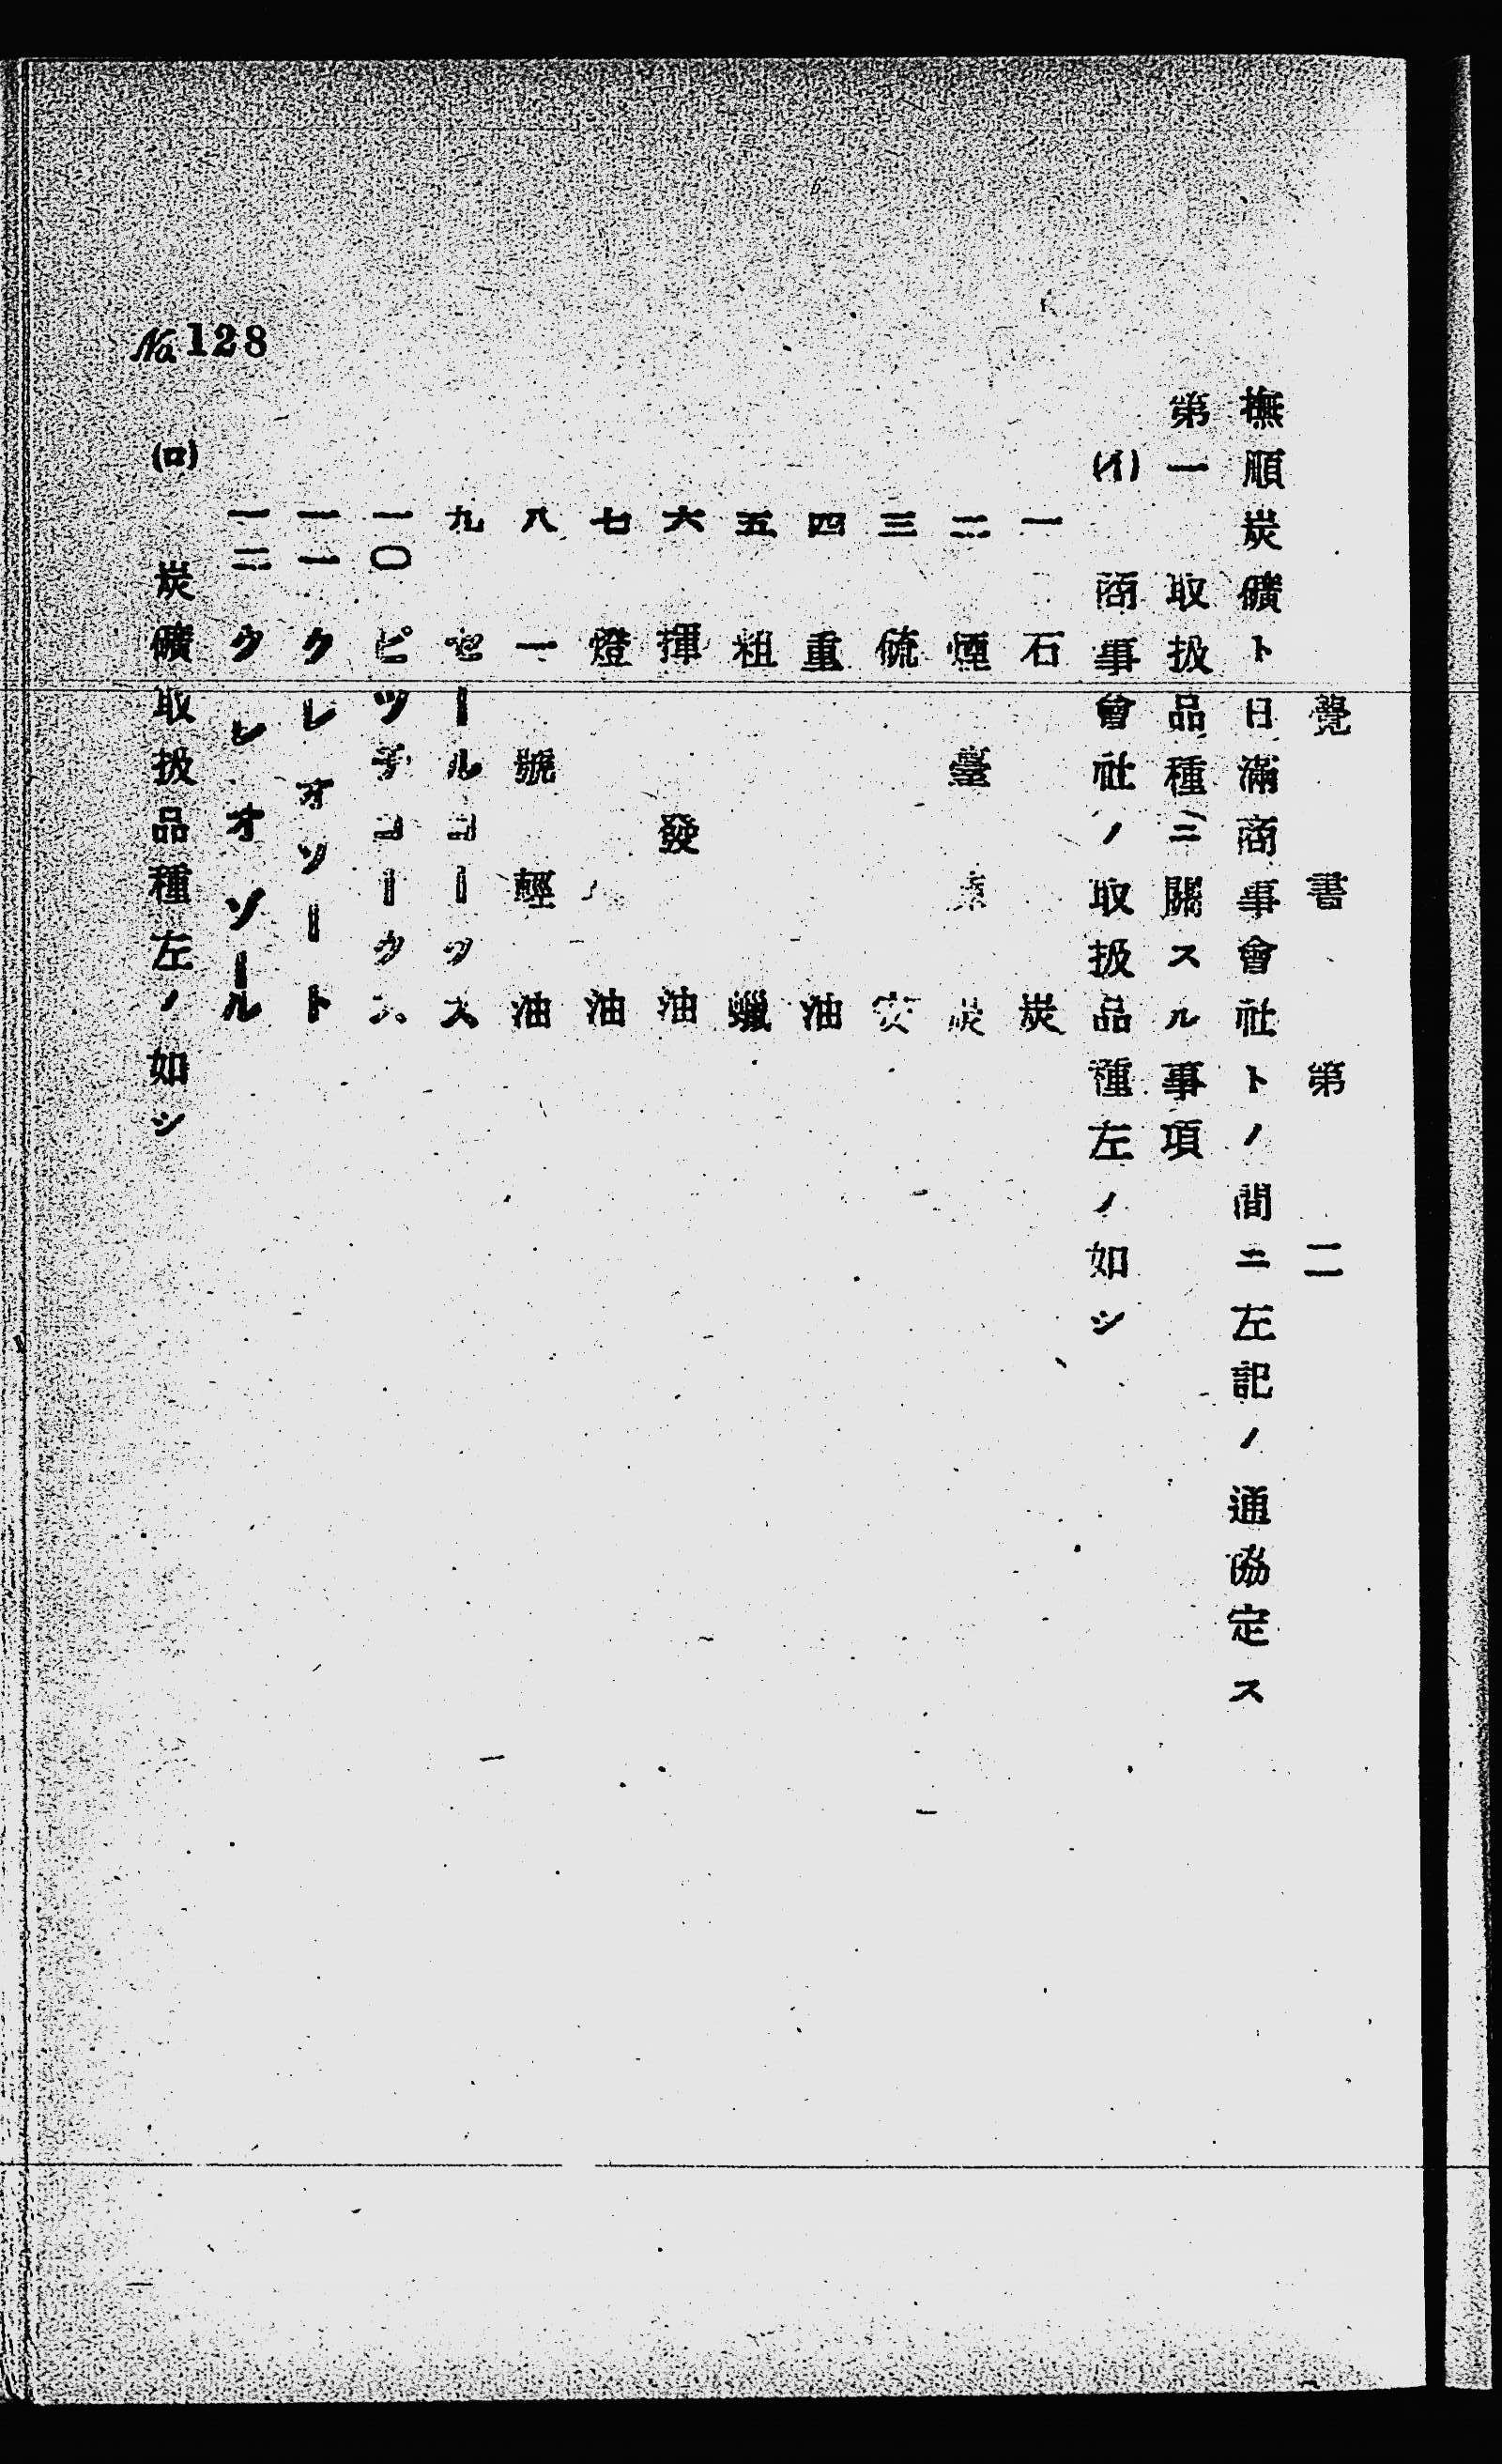 覺書第二
撫順炭礦ト日滿商事會社トノ間ニ左記ノ通協定ス
第一 取扱品種ニ關スル事項
(イ) 商事會社ノ取扱品種左ノ如シ
一 石炭
二 煙臺 炭
三 硫安
四 重油
五 粗蠟
六 揮發油
七 燈油
八 一號輕油
九 セールコークス
一〇 ピツチコークス
一一 クレオソート
一二 クレオソール
(ロ) 炭礦取扱品種左ノ如シ
No128